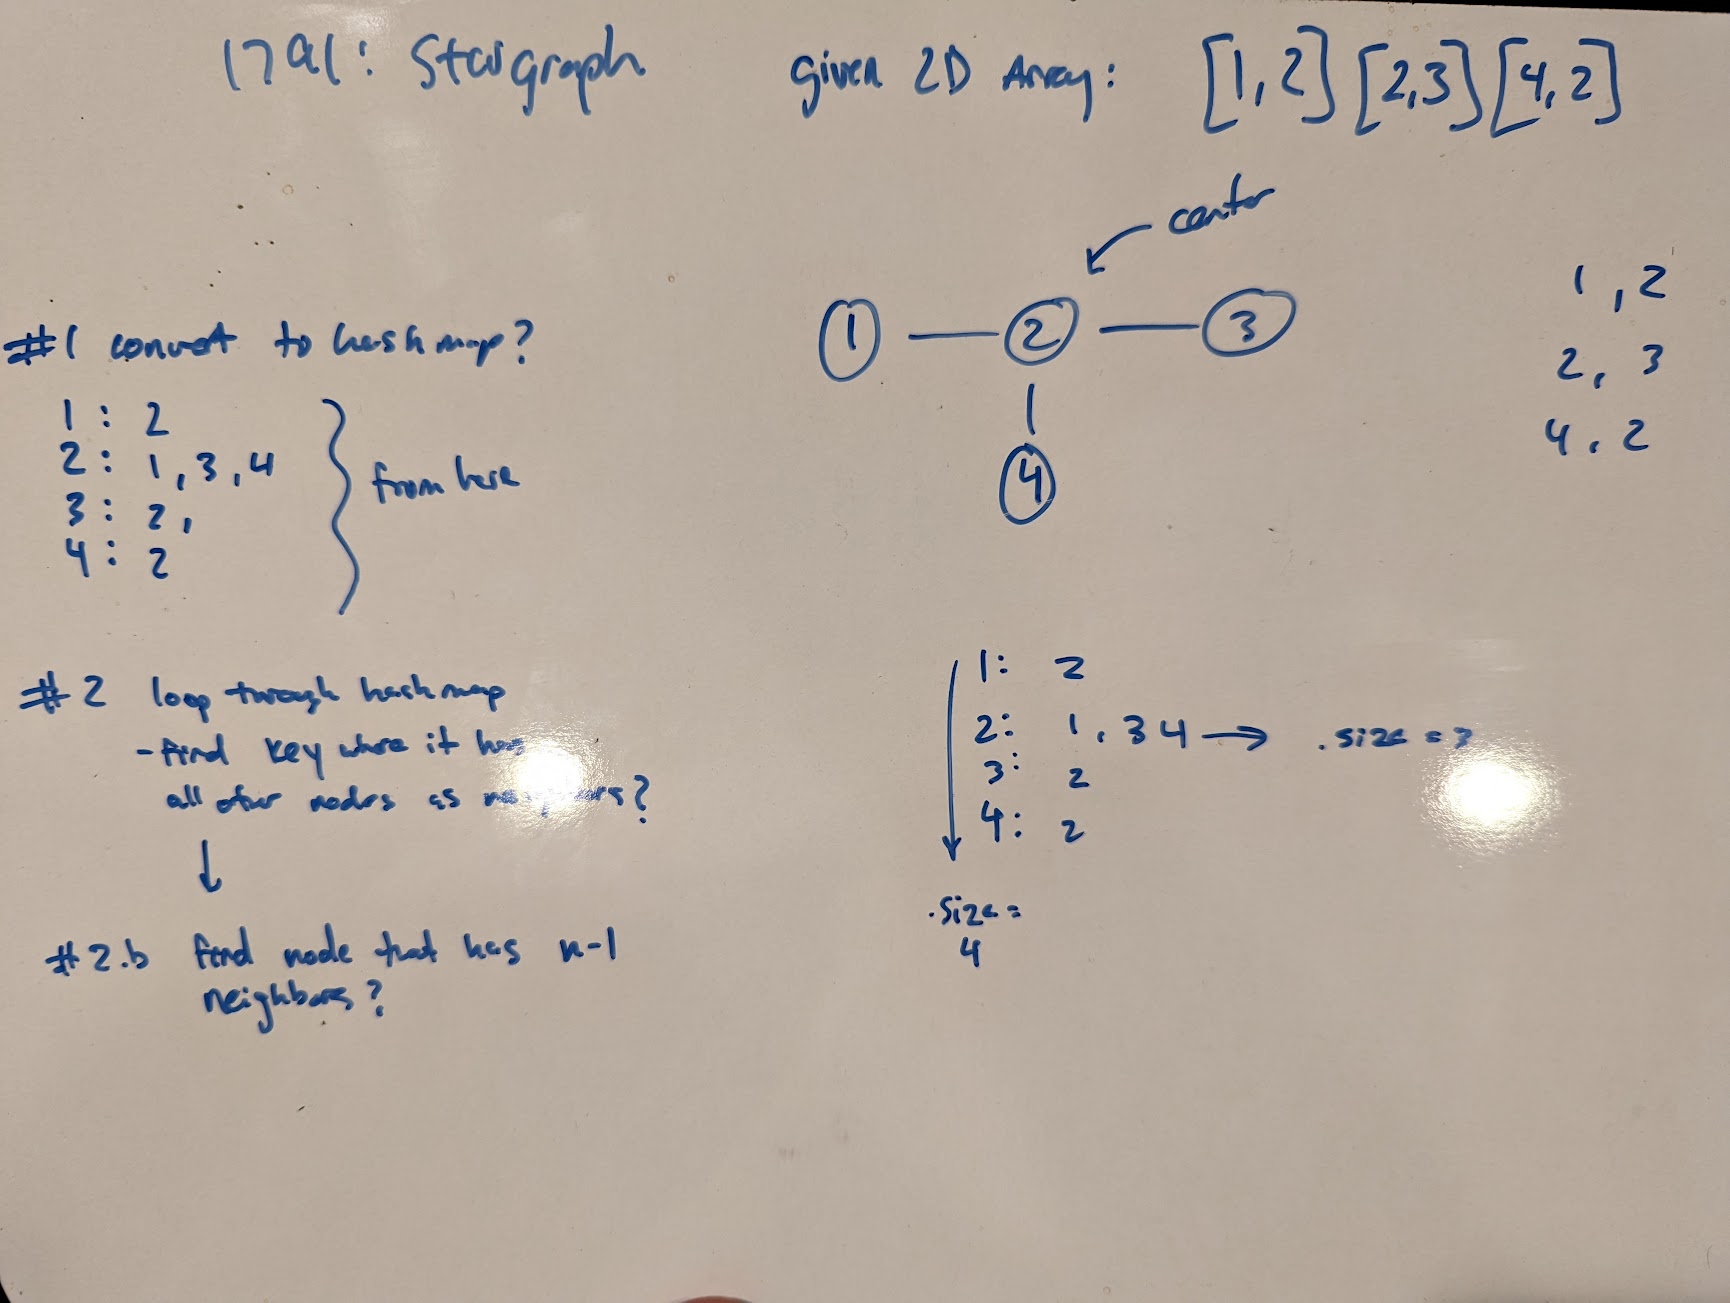 1791: Stargraph
given 2D Array: [1,2] [2,3] [4,2]
center
1 2 3
4
1, 2
2, 3
4, 2
#1 convert to hashmap?
1: 2
2: 1, 3, 4
3: 2,
4: 2
from here
#2 loop through hashmap
- find key where it has
all other nodes as neighbors?
#2.b find node that has n-1
neighbors?
1: 2
2: 1, 3 4 → .size = 3
3: 2
4: 2
.size =
4